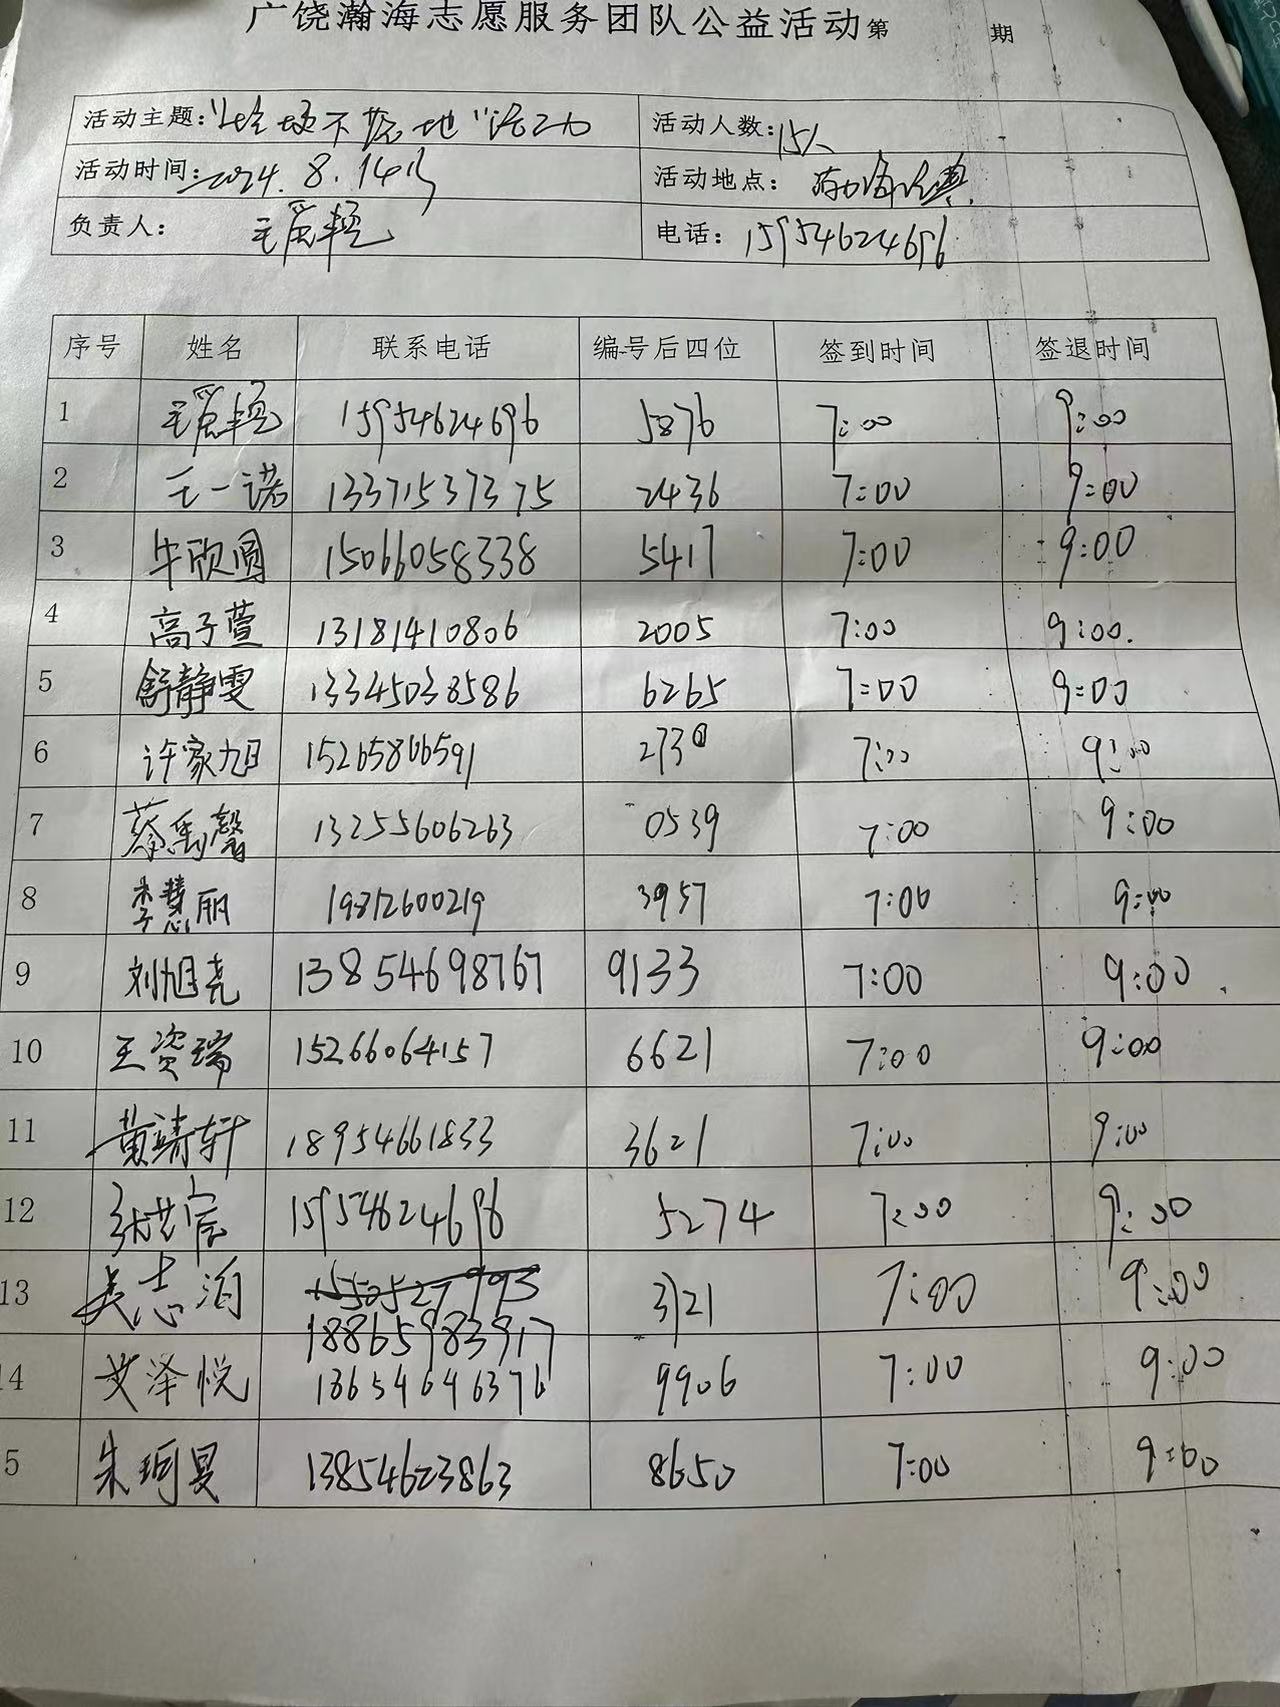 广饶瀚海志愿服务团队公益活动第 期
活动主题:"垃圾不落地"活动 活动人数:15人
活动时间:2024.8.14日 活动地点:
负责人: 电话:15954624696
序号 姓名 联系电话 编号后四位 签到时间 签退时间
1 15954624696 5876 7:00 9:00
2 王一诺 13371537375 2436 7:00 9:00
3 牛欣圆 15066058338 5417 7:00 9:00
4 高子萱 13181410806 2005 7:00 9:00.
5 舒静雯 13345038586 6265 7:00 9:00
6 许家旭 15265806591 2730 7:00 9:00
7 蔡禹馨 13255606263 0539 7:00 9:00
8 李慧丽 19812600219 3957 7:00 9:00
9 刘旭尧 13854698767 9133 7:00 9:00
10 王资瑞 15266064157 6621 7:00 9:00
11 黄靖轩 18954661833 3621 7:00 9:00
12 15954624696 5274 7:00 9:00
13 吴志泊 3721 7:00 9:00
18865983917
14 艾泽悦 13654646376 9906 7:00 9:00
5 朱珂昊 13854623863 8650 7:00 9:00